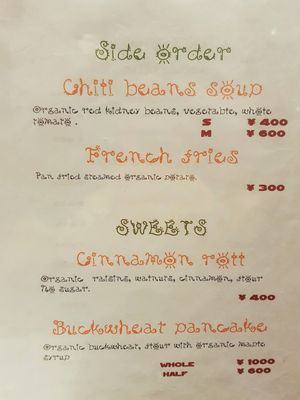 Side order
Chili beans soup
Organic red kidney beans, vegetable, whole
tomato .
S ¥ 400
M ¥ 600
French fries
Pan fried steamed organic potato.
¥ 300
SWEETS
Cinnamon roll
Organic raisins, walnuts, cinnamon, flour
No sugar.
¥ 400
Buckwheat pancake
Organic buckwheat, flour with organic maple
syrup
WHOLE ¥ 1000
HALF ¥ 600